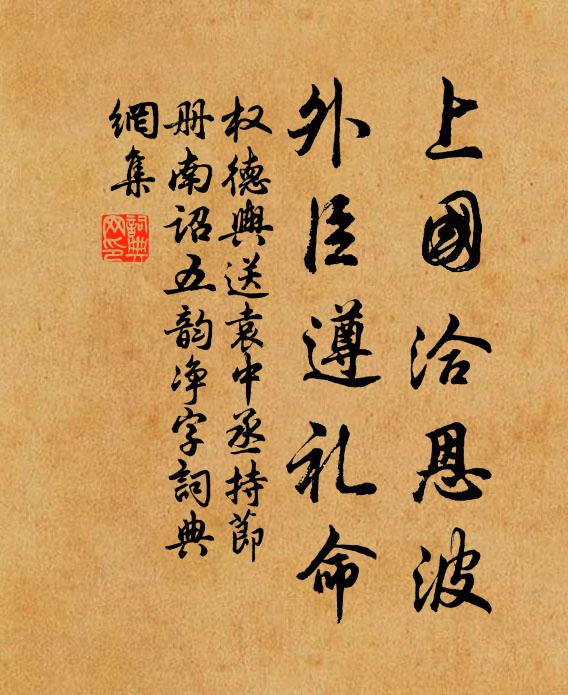 上國洽恩波
外臣遵礼命
权德輿送袁中丞持節
册南诏五韵净字詞典
網集
詞典
网印